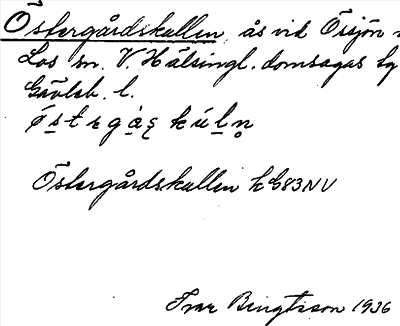 Östergårdskullen, ås vid Örsjön
Los sn. V. Hälsingl. domsagas tg
Gävleb. l.
Östergårdskullen k G83NV
Ivar Bengtsson 1936